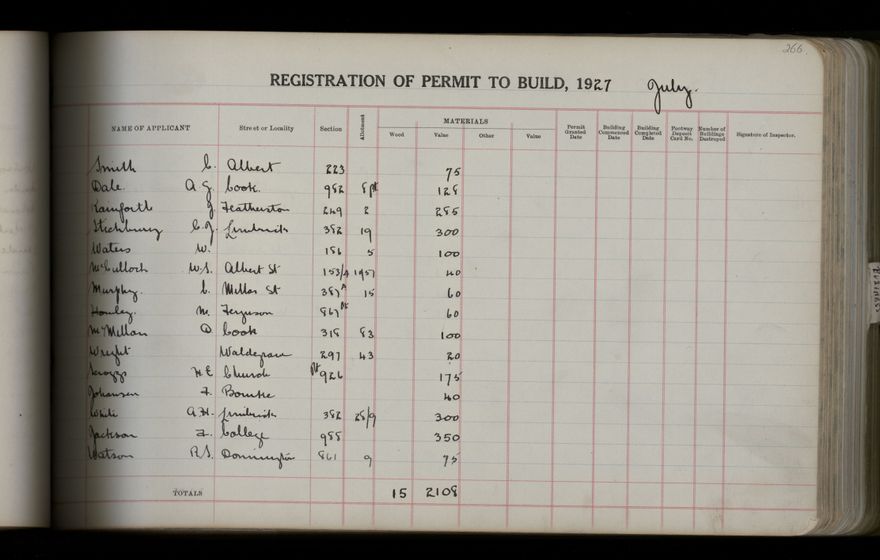 266
REGISTRATION OF PERMIT TO BUILD, 1927 July.
NAME OF APPLICANT Street or Locality Section Allotment MATERIALS Permit Granted Date Building Commenced Date Building Completed Date Footway Deposit Card No. Number of Buildings Destroyed Signature of Inspector.
Wood Value Other Value
Smith C. Albert 223 75
Dale. A G. Cook. 982 8 pt 128
Rainforth J Featherston 249 2 285
Stichbury C.J. 382 19 300
Waters W. 186 5 100
McCulloch W.S. Albert St 153/4 1957 40
Murphy. C. Millar St 387A 15 60
Howley. M. Ferguson 867 pt 60
McMillan D. Cook 318 83 100
Wright Waldegrave 297 43 20
H E Church pt 926 175
Johansen F. Bourke 40
White A.H. 382 28/9 300
Jackson F. College 988 350
Watson R.S. Donnington 861 9 75
TOTALS 15 2108